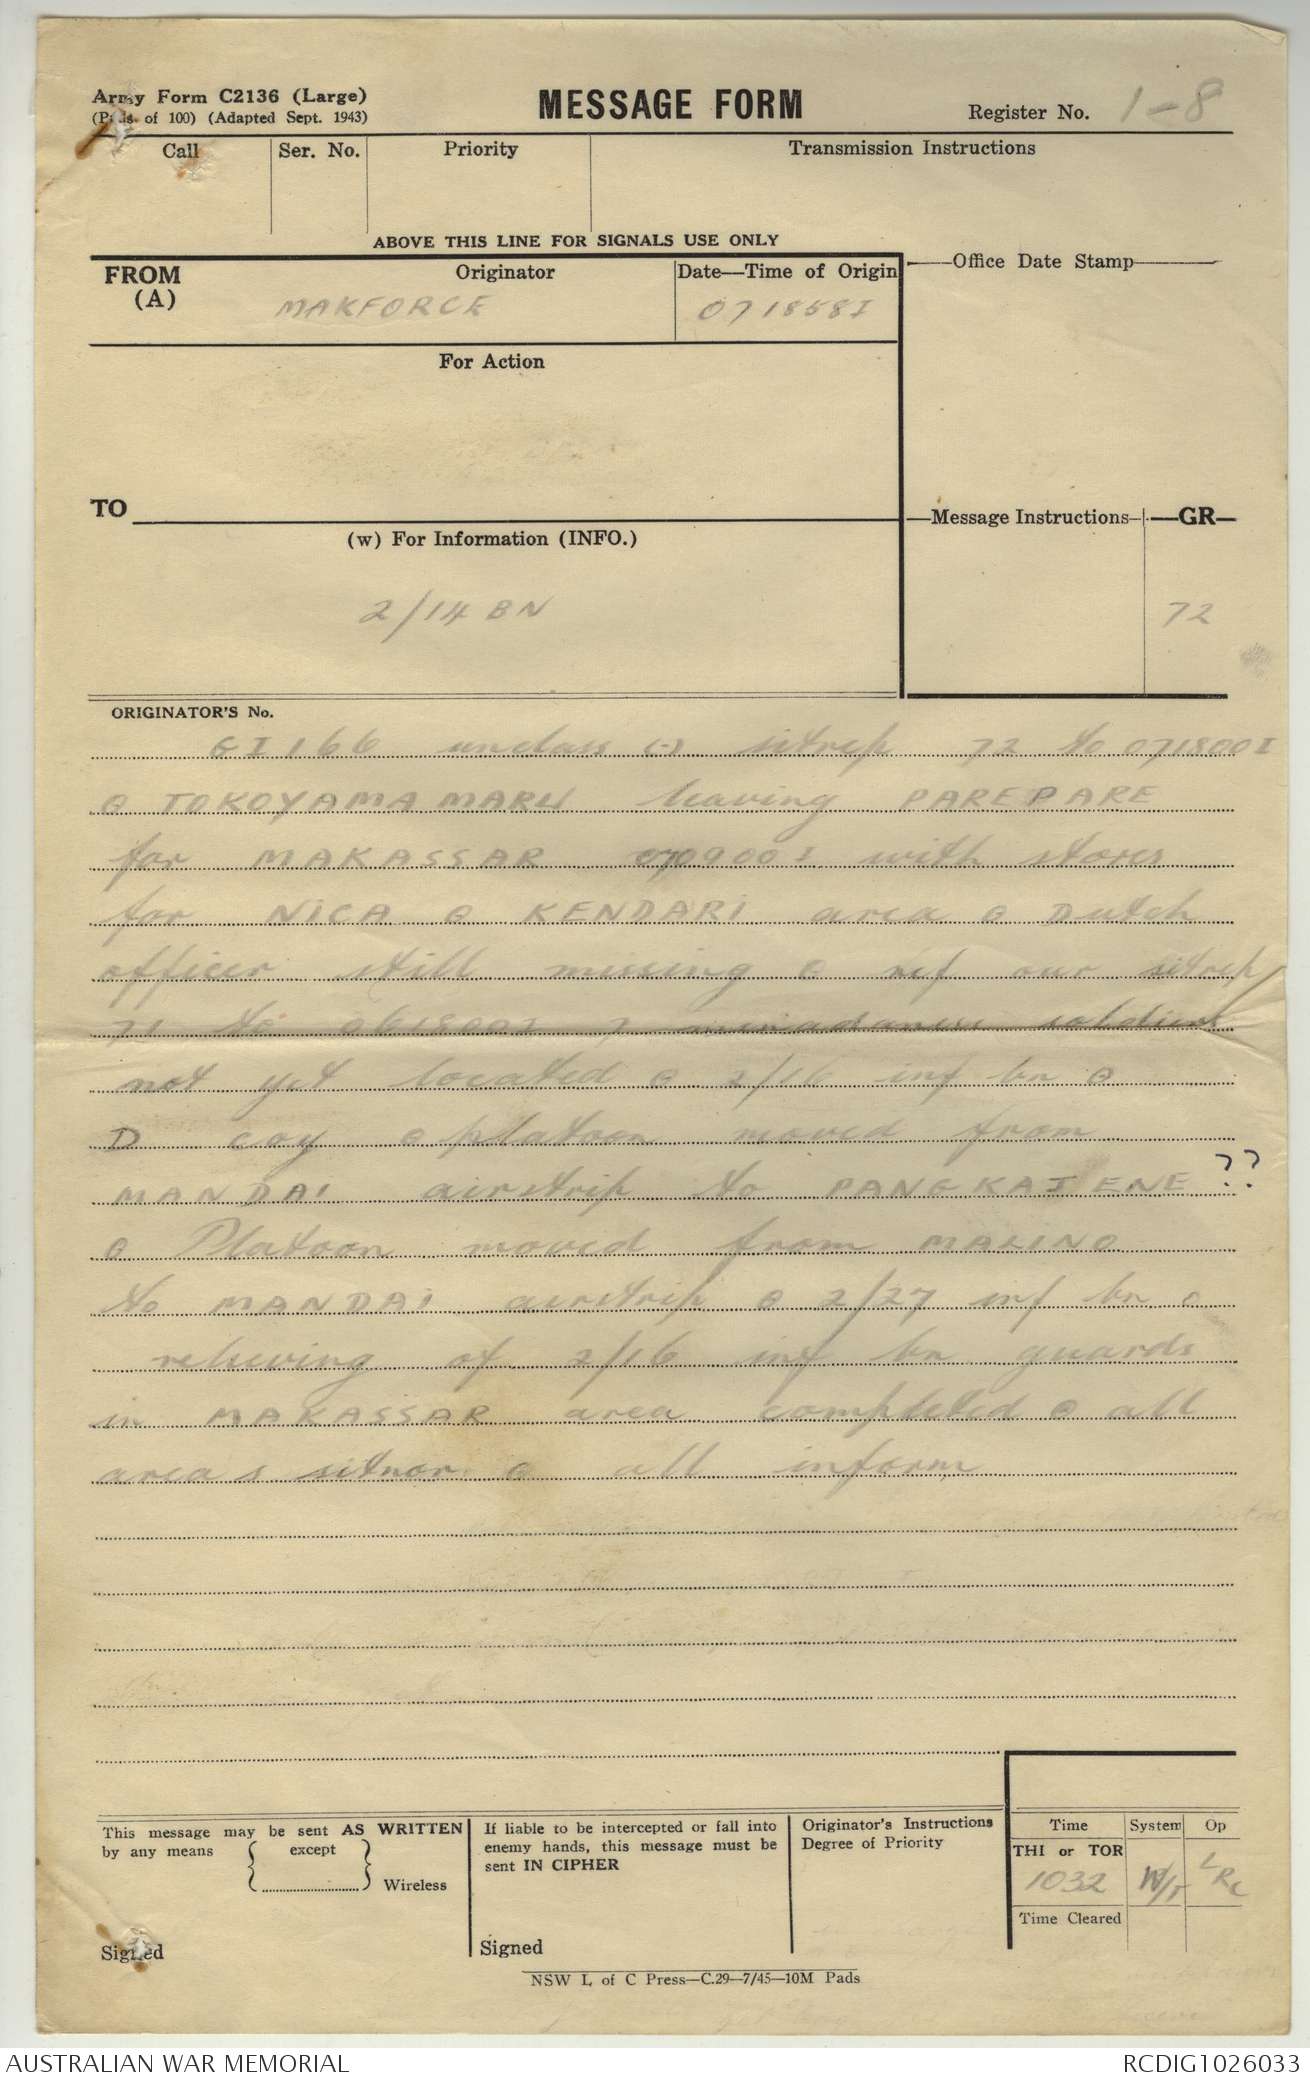 Army Form C2136 (Large)
(Pads of 100) (Adapted Sept. 1943)
MESSAGE FORM
Register No. 1-8
Call
Ser. No.
Priority
Transmission Instructions
ABOVE THIS LINE FOR SIGNALS USE ONLY
FROM
(A)
Originator
MAKFORCE
Date—Time of Origin
071858I
Office Date Stamp
For Action
TO
(w) For Information (INFO.)
2/14 BN
Message Instructions
GR
72
ORIGINATOR'S No.
GI 166 unclass (-) sitrep 72 to 071800I
@ TOKOYAMA MARU leaving PAREPARE
for MAKASSAR 070900I with stores
for NICA @ KENDARI area @ Dutch
officer still missing @ ref our sitrep
71 to 061800I 7 menadanese soldiers
not yet located @ 2/16 inf bn @
D coy @ platoon moved from
MANDAI airstrip to PANGKAJENE ??
@ Platoon moved from MALINO
to MANDAI airstrip @ 2/27 inf bn @
relieving of 2/16 inf bn guards
in MAKASSAR area completed @ all
areas sitnor @ all inform
This message may be sent AS WRITTEN
by any means
except
Wireless
Signed
If liable to be intercepted or fall into
enemy hands, this message must be
sent IN CIPHER
Signed
Originator's Instructions
Degree of Priority
Time
System
Op
THI or TOR
1032
W/T
Time Cleared
NSW L of C Press—C.29—7/45—10M Pads
AUSTRALIAN WAR MEMORIAL
RCDIG1026033